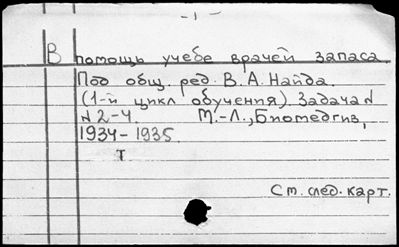 - 1 -
В помощь учебе врачей запаса.
Под общ. ред. В.А. Найда.
(1-й цикл обучения). Задача №
№ 2-4. М.-Л., Биомедгиз,
1934-1935.
т
См. след. карт.